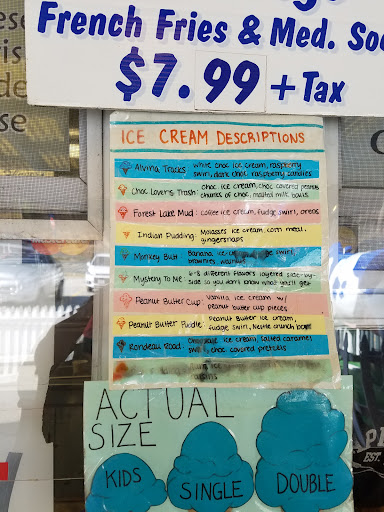 French Fries & Med. So
$7.99 + Tax
ICE CREAM DESCRIPTIONS
Alvina Tracks: white choc ice cream, raspberry
swirl, dark choc raspberry candies
Choc Lover's Trash: Choc ice cream, choc covered peanuts
chunks of choc, malted milk balls
Forest Lake Mud: Coffee ice cream, fudge swirl, oreos
Indian Pudding: Molasses ice cream, corn meal,
gingersnaps
Monkey Butt: Banana ice swirl,
brownies, walnuts
Mystery To Me: 6-8 different flavors layered side-by-
side so you don't know what you'll get
Peanut Butter Cup: Vanilla ice cream w/
peanut butter cup pieces
Peanut Butter Puddle: Peanut Butter ice cream,
fudge swirl, Nestle crunch bar
Rondeau Road: ice cream, salted caramel
swirl, choc covered pretzels
ACTUAL
SIZE
KIDS
SINGLE
DOUBLE
EST.